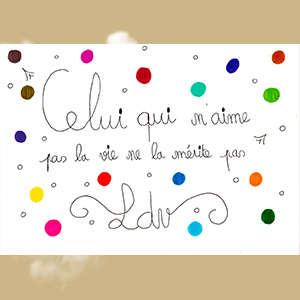 Celui qui n'aime
pas la vie ne la mérite pas
Ldv